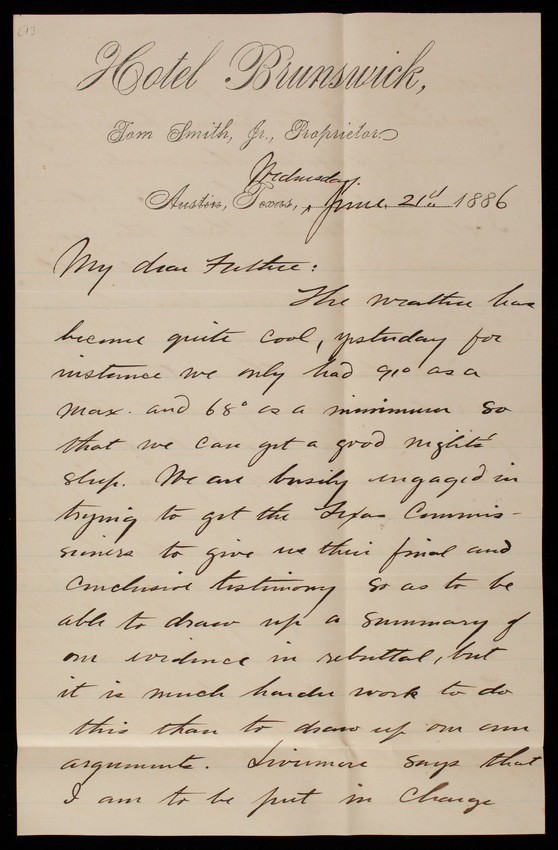 Hotel Brunswick,
Tom Smith, Jr., Proprietor.
Wednesday.
Austin, Texas, June 21d 1886
My dear Father:
The weather has
become quite cool, yesterday for
instance we only had 91° as a
max. and 68° as a minimum so
that we can get a good night's
sleep. We are busily engaged in
trying to get the Texas Commis-
sioners to give us their final and
conclusive testimony so as to be
able to draw up a summary of
our evidence in rebuttal, but
it is much harder work to do
this than to draw up our own
arguments. Livermore says that
I am to be put in charge